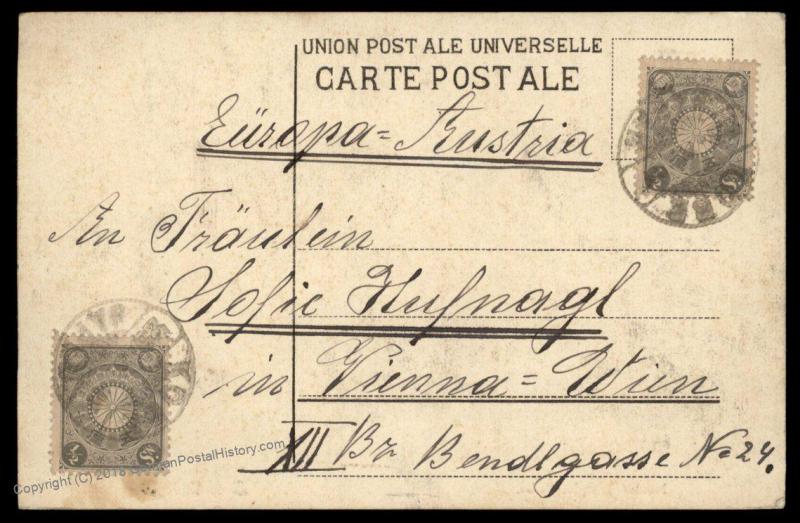 UNION POSTALE UNIVERSELLE
CARTE POSTALE
Európa = Austria
An Fräulein
Sofie Hufnagl
in Vienna = Wien
XII Bz Bendlgasse No 24.
½ Sn.
½ Sn.
Copyright (C) 2018 GermanPostalHistory.com